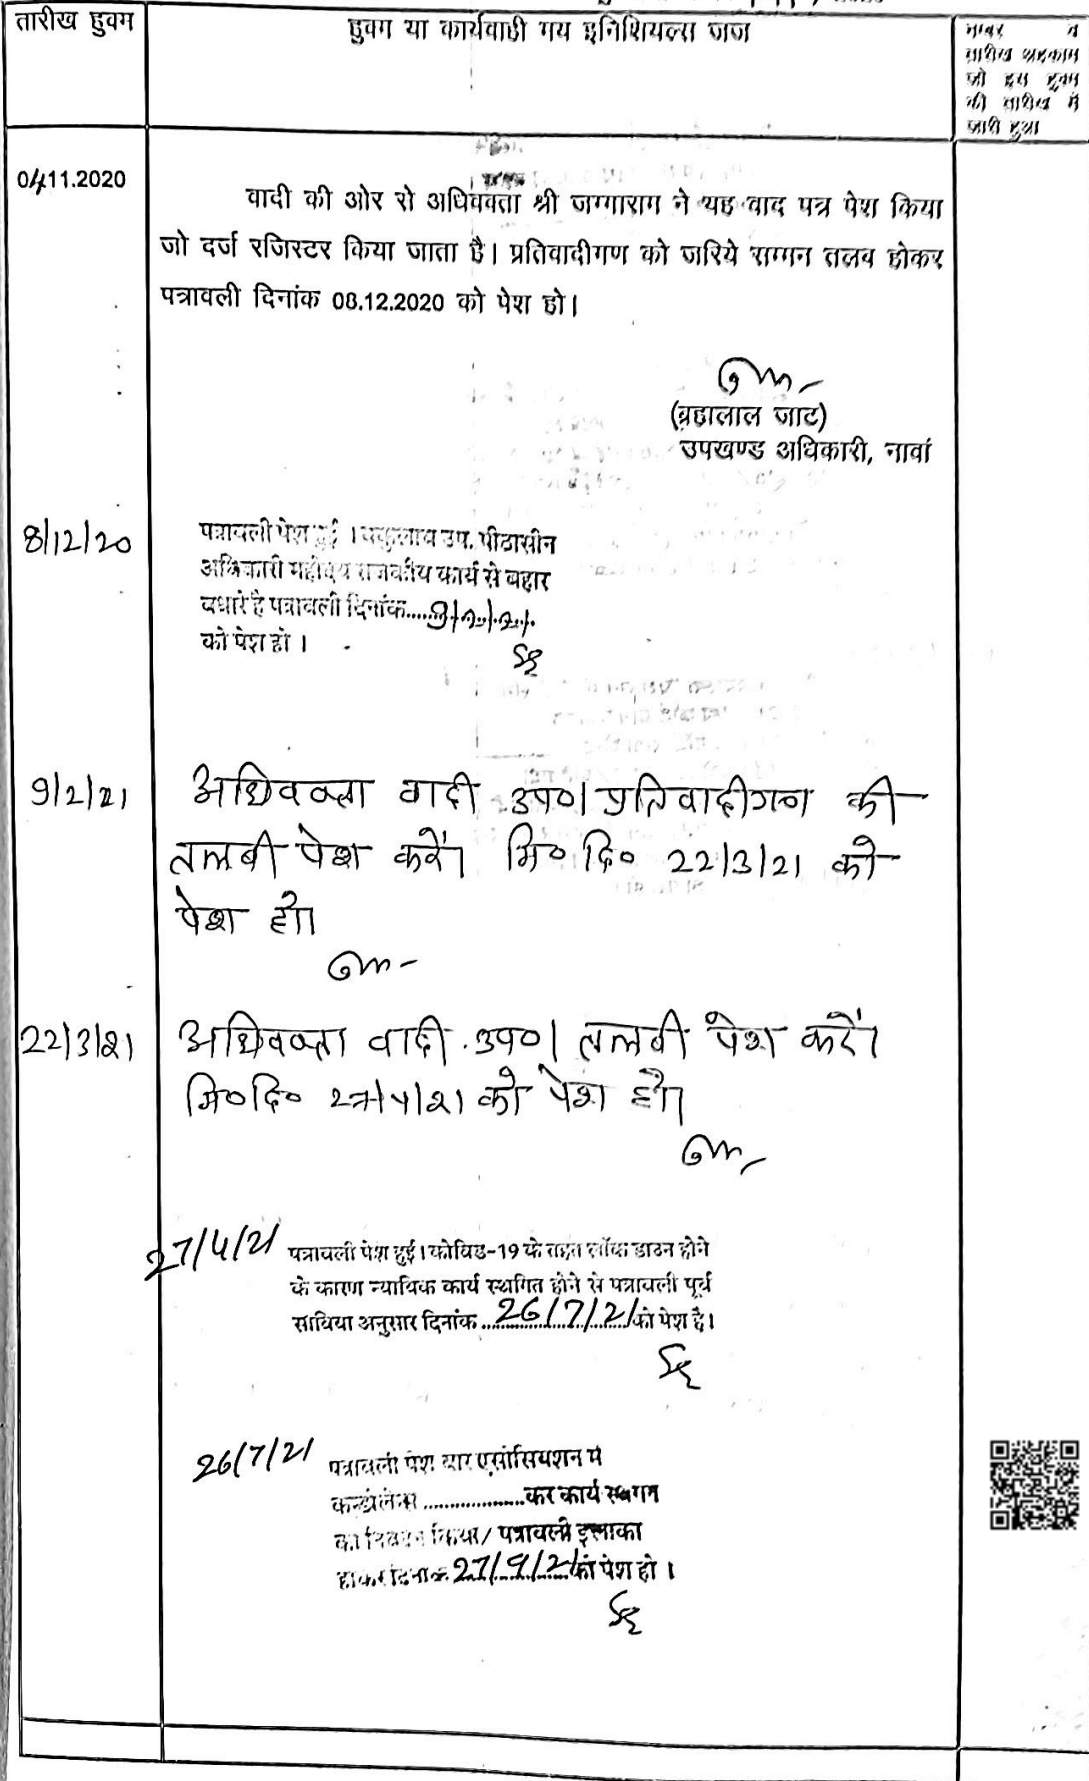 तारीख हुक्म
हुक्म या कार्यवाही मय इनिशियल्स जज
नम्बर व
तारीख अहकाम
जो इस हुक्म
की तारीख में
जारी हुआ
04.11.2020
वादी की ओर से अधिवक्ता श्री जग्गाराम ने यह वाद पत्र पेश किया
जो दर्ज रजिस्टर किया जाता है। प्रतिवादीगण को जरिये सम्मन तलब होकर
पत्रावली दिनांक 08.12.2020 को पेश हो।
(ब्रह्मलाल जाट)
उपखण्ड अधिकारी, नावां
8/12/20
पत्रावली पेश हुई । वकुलाय उप. पीठासीन
अधिकारी महोदय राजकीय कार्य से बहार
पधारे है पत्रावली दिनांक......9/2/21.
को पेश हो ।
9/2/21
अधिवक्ता वादी उप०। प्रतिवादीगण की
तलबी पेश करें। मि० दि० 22/3/21 को
पेश हो।
22/3/21
अधिवक्ता वादी उप०। तलबी पेश करें।
मि० दि० 27/4/21 को पेश हो।
27/4/21
पत्रावली पेश हुई । कोविड-19 के तहत लॉक डाउन होने
के कारण न्यायिक कार्य स्थगित होने से पत्रावली पूर्व
अनुसार दिनांक ...26/7/21 को पेश है।
26/7/21
पत्रावली पेश बार एसोसियशन में
कन्डोलेन्स ...................कर कार्य स्थगन
का किया/ पत्रावली इलाका
होकर दिनांक 27/9/21 को पेश हो ।